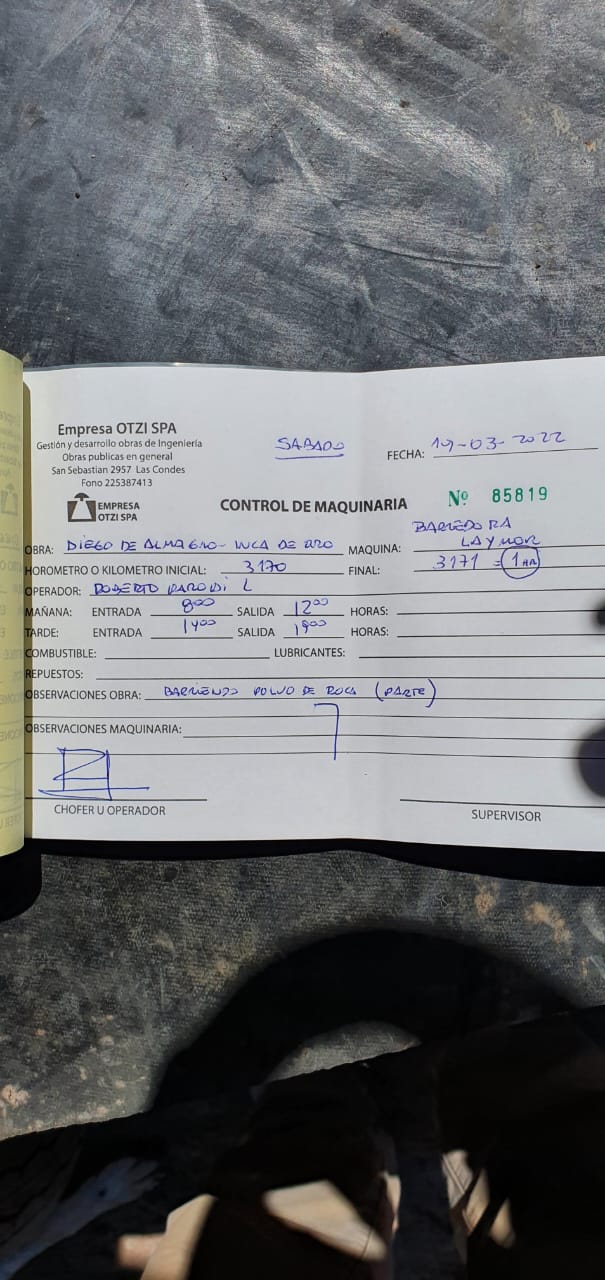 Empresa OTZI SPA
Gestión y desarrollo obras de Ingenieria
Obras publicas en general
San Sebastian 2957 Las Condes
Fono 225387413
SABADO
FECHA: 19-03-2022
EMPRESA
OTZI SPA
CONTROL DE MAQUINARIA
Nº 85819
OBRA: DIEGO DE ALMAGRO - INCA DE ORO
MAQUINA: BARREDORA
LAYMOR
HOROMETRO O KILOMETRO INICIAL: 3170 FINAL: 3171 = 1 HR
OPERADOR: ROBERTO PARODI L
MAÑANA: ENTRADA 8:00 SALIDA 12:00 HORAS:
TARDE: ENTRADA 14:00 SALIDA 18:00 HORAS:
COMBUSTIBLE: LUBRICANTES:
REPUESTOS:
OBSERVACIONES OBRA: BARRIENDO POLVO DE ROCA (PARTE)
OBSERVACIONES MAQUINARIA:
CHOFER U OPERADOR
SUPERVISOR